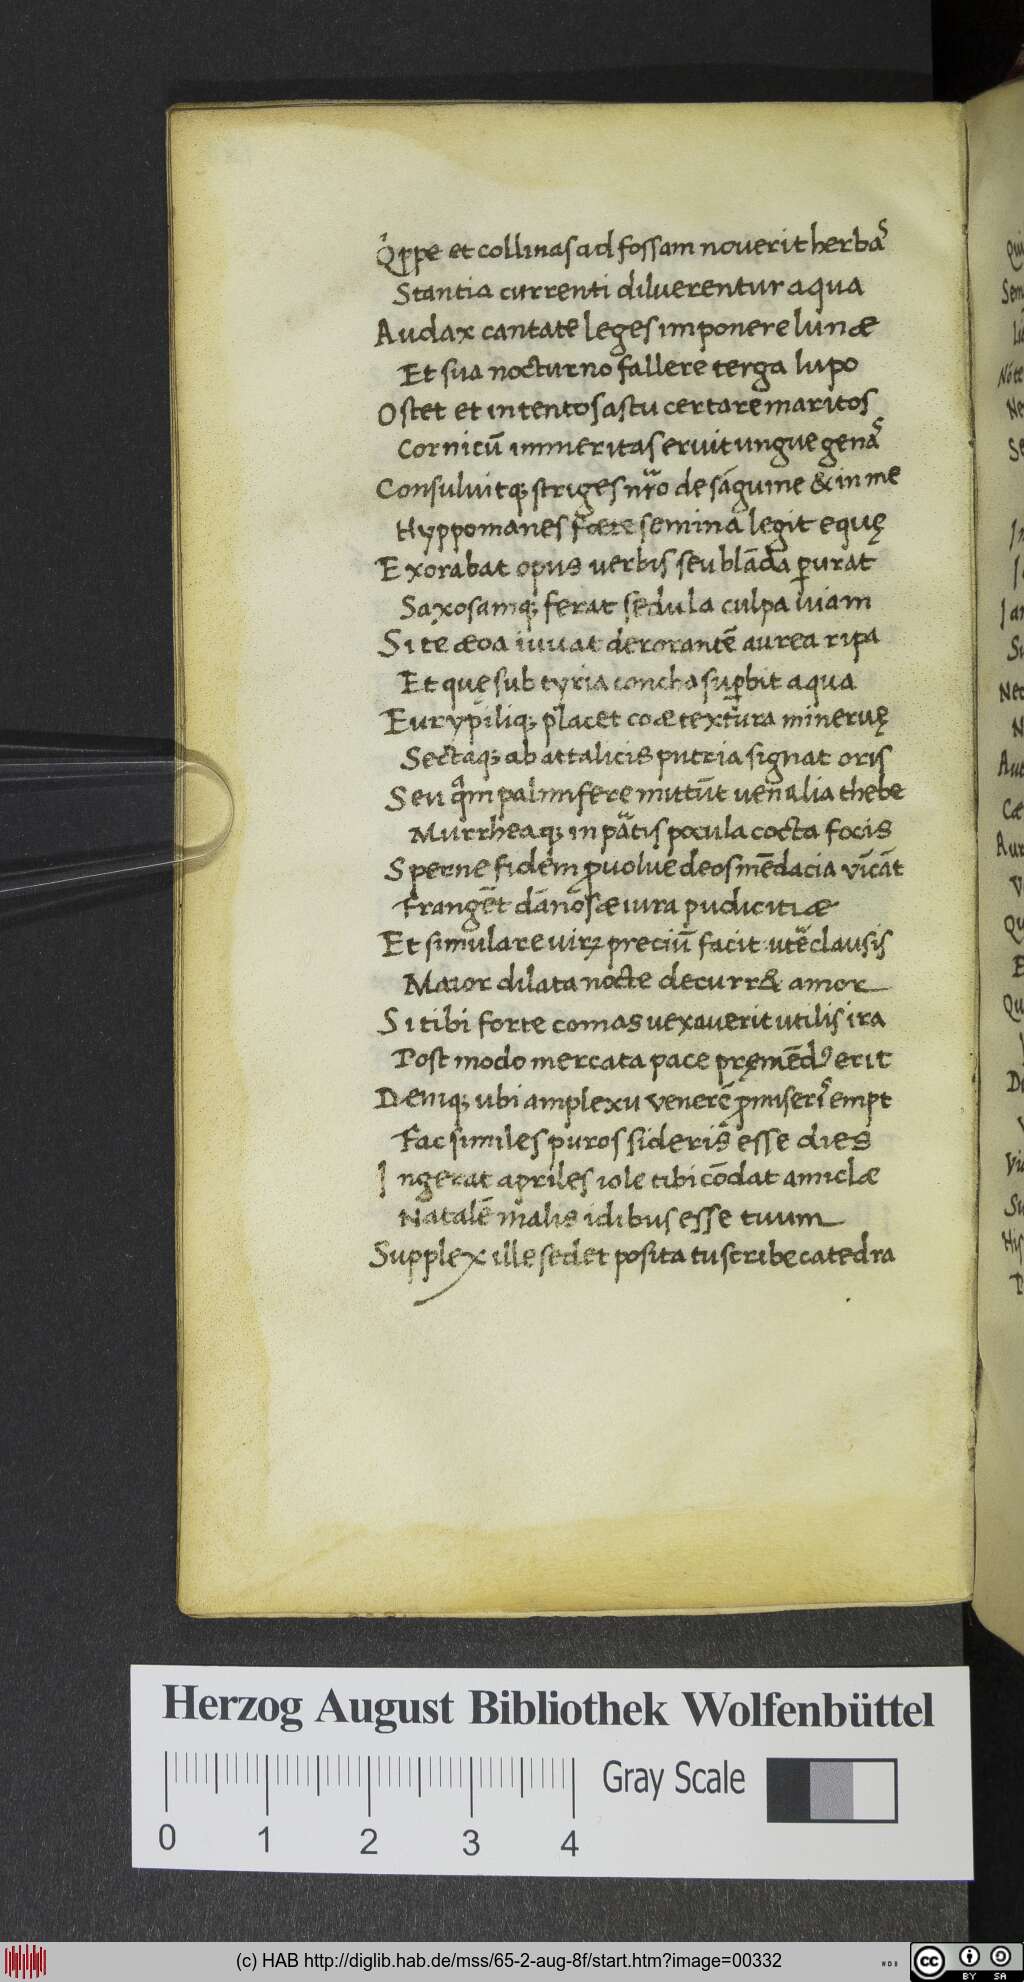 Qͥppe et collinas ad fossam nouerit herbas
Stantia currenti diluerentur aqua
Audax cantate leges imponere lunæ
Et sua nocturno fallere terga lupo
Ostet et intentos astu certare maritos
Cornicū immeritas eruit ungue genas
Consuluitq; striges nr̃o de sāguine & in me
Hyppomanes fœte semina legit equę
Exorabat opus uerbis seu blāda ꝑurat
Saxosamq; ferat sedula culpa uiam
Si te æoa iuuat derorantē aurea ripa
Et quę sub tyria concha suꝑbit aqua
Eurypiliq; placet coæ textura mineruę
Sectaq; ab attalicis putria signat oris
Seu qͣm palmifere mittūt uenalia thebe
Murrheaq; in pͣtis pocula cocta focis
Sperne fidem ꝓuolue deos mēdacia vīcāt
Frangēt dānosæ iura pudicitiæ
Et simulare uirꝝ preciū facit utē clausis
Maior dilata nocte decurr& amor
Si tibi forte comas uexauerit utilis ira
Post modo mercata pace pręmēdꝰ erit
Deniq; ubi amplexu venerē ꝓmiseris empt
Fac similes puros sideris esse dies
Ingerat apriles iole tibi cōdat amiclæ
Natalē malis idibus esse tuum
Supplex ille sedet posita tu scribe catedra
Herzog August Bibliothek Wolfenbüttel
Gray Scale
0 1 2 3 4
(c) HAB http://diglib.hab.de/mss/65-2-aug-8f/start.htm?image=00332
cc BY SA